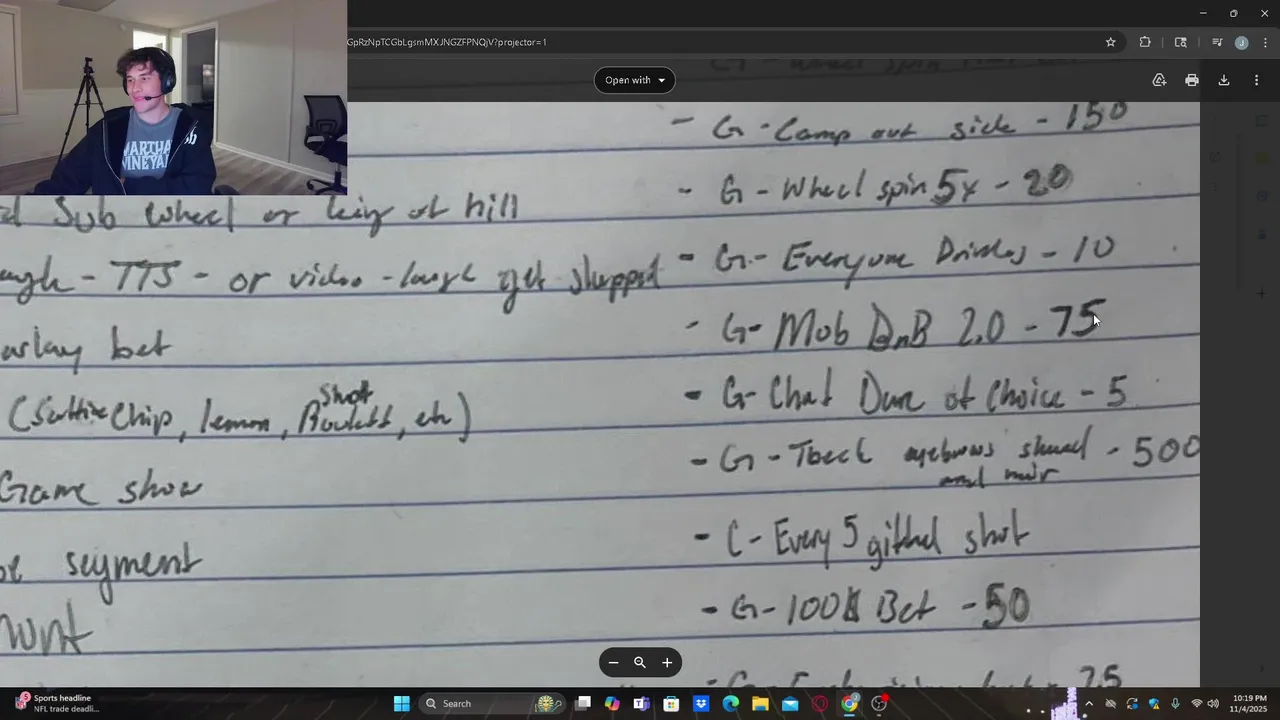 GpRzNpTCGbLgsmMXJNGZFPNQjV?projector=1
Open with
MARTHA
VINEYARD
- G - Camp out side - 150
Sub Wheel or king of hill
- G - Wheel spin 5x - 20
- TTS - or video - laugh get slapped
- G - Everyone Drinks - 10
bet
- G - Mob DnB 2.0 - 75
Shot
(Chip, lemon, Roulett, etc)
- G - Chat Dare of Choice - 5
Game show
- G - Tbeck eyebrows shaved - 500
and hair
segment
- C - Every 5 gifted shot
- G - 100$ Bet - 50
75
5
Sports headline
NFL trade deadli...
Search
10:19 PM
11/4/2025